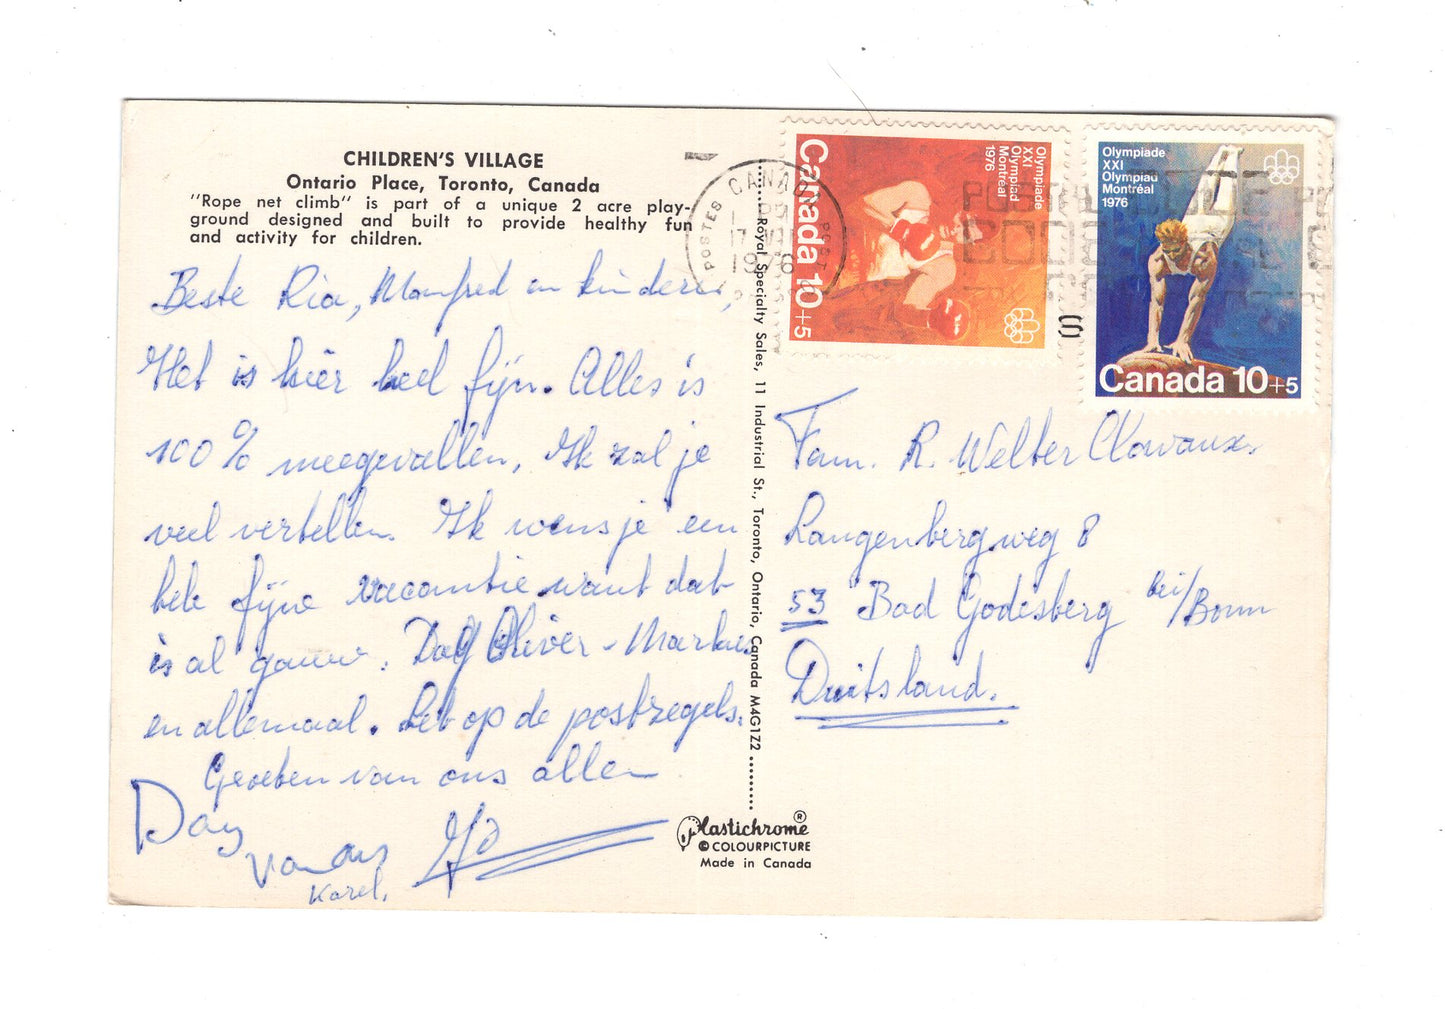 CHILDREN'S VILLAGE
Ontario Place, Toronto, Canada
"Rope net climb" is part of a unique 2 acre play-
ground designed and built to provide healthy fun
and activity for children.
Beste Ria, Manfred en kinderen,
Het is hier heel fijn. Alles is
100 % meegevallen. Ik zal je
veel vertellen. Ik wens je een
hele fijne vacantie want dat
is al gauw. Dag Oliver - Markus
en allemaal. Let op de postzegels.
Groeten van ons allen
Dag
van ons
Karel.
Royal Specialty Sales, 11 Industrial St., Toronto, Ontario, Canada M4G1Z2
Plastichrome ®
© COLOURPICTURE
Made in Canada
POSTES CANADA POST
17
1976
Canada 10+5
Olympiade
XXI
Olympiad
Montréal
1976
Olympiade
XXI
Olympiad
Montréal
1976
Canada 10+5
POSTAL CODE
CODE
Fam. R. Welter
Langenbergweg 8
53 Bad Godesberg bei/Bonn
Duitsland.